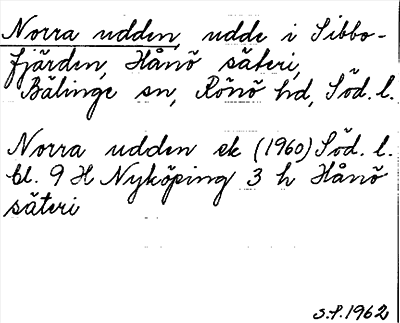 Norra udden, udde i Sibbo-
fjärden, Hånö säteri,
Bälinge sn, Rönö hd, Söd. l.
Norra udden ek (1960) Söd. l.
bl. 9 H Nyköping 3 h Hånö
säteri
S.F. 1962